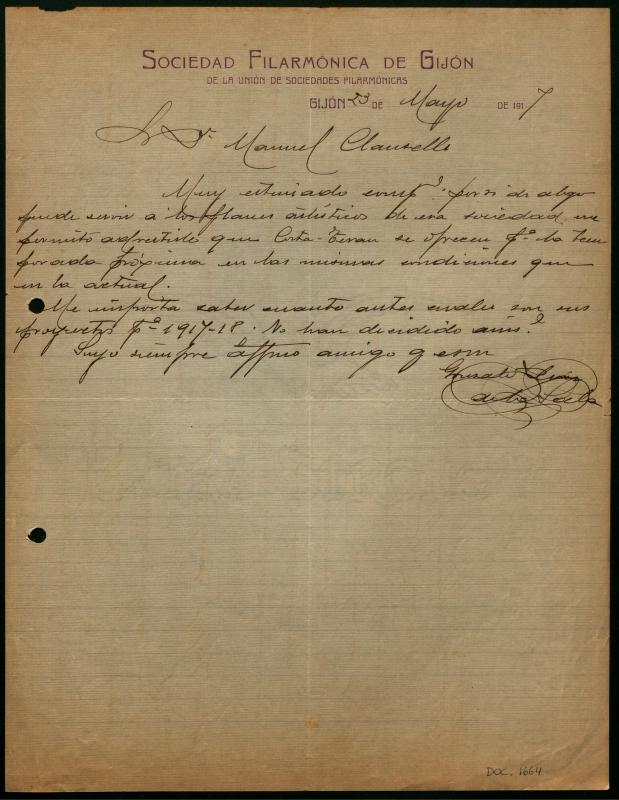 SOCIEDAD FILARMÓNICA DE GIJÓN
DE LA UNIÓN DE SOCIEDADES FILARMÓNICAS
GIJÓN 23 DE Mayo DE 1917
Sr Dn. Manuel Clausells
Muy estimado comp.º: por si de algo
puede servir á los planes artísticos de esa sociedad me
permito advertirle que Costa-Teran se ofrecen pª la tem
porada próxima en las mismas condiciones que
en la actual.
Me importa saber cuanto antes cuales son sus
proyectos pª 1917-18. No han decidido aún?
Suyo siempre affmo amigo q esm
Gonzalo
de la
DOC. 1664